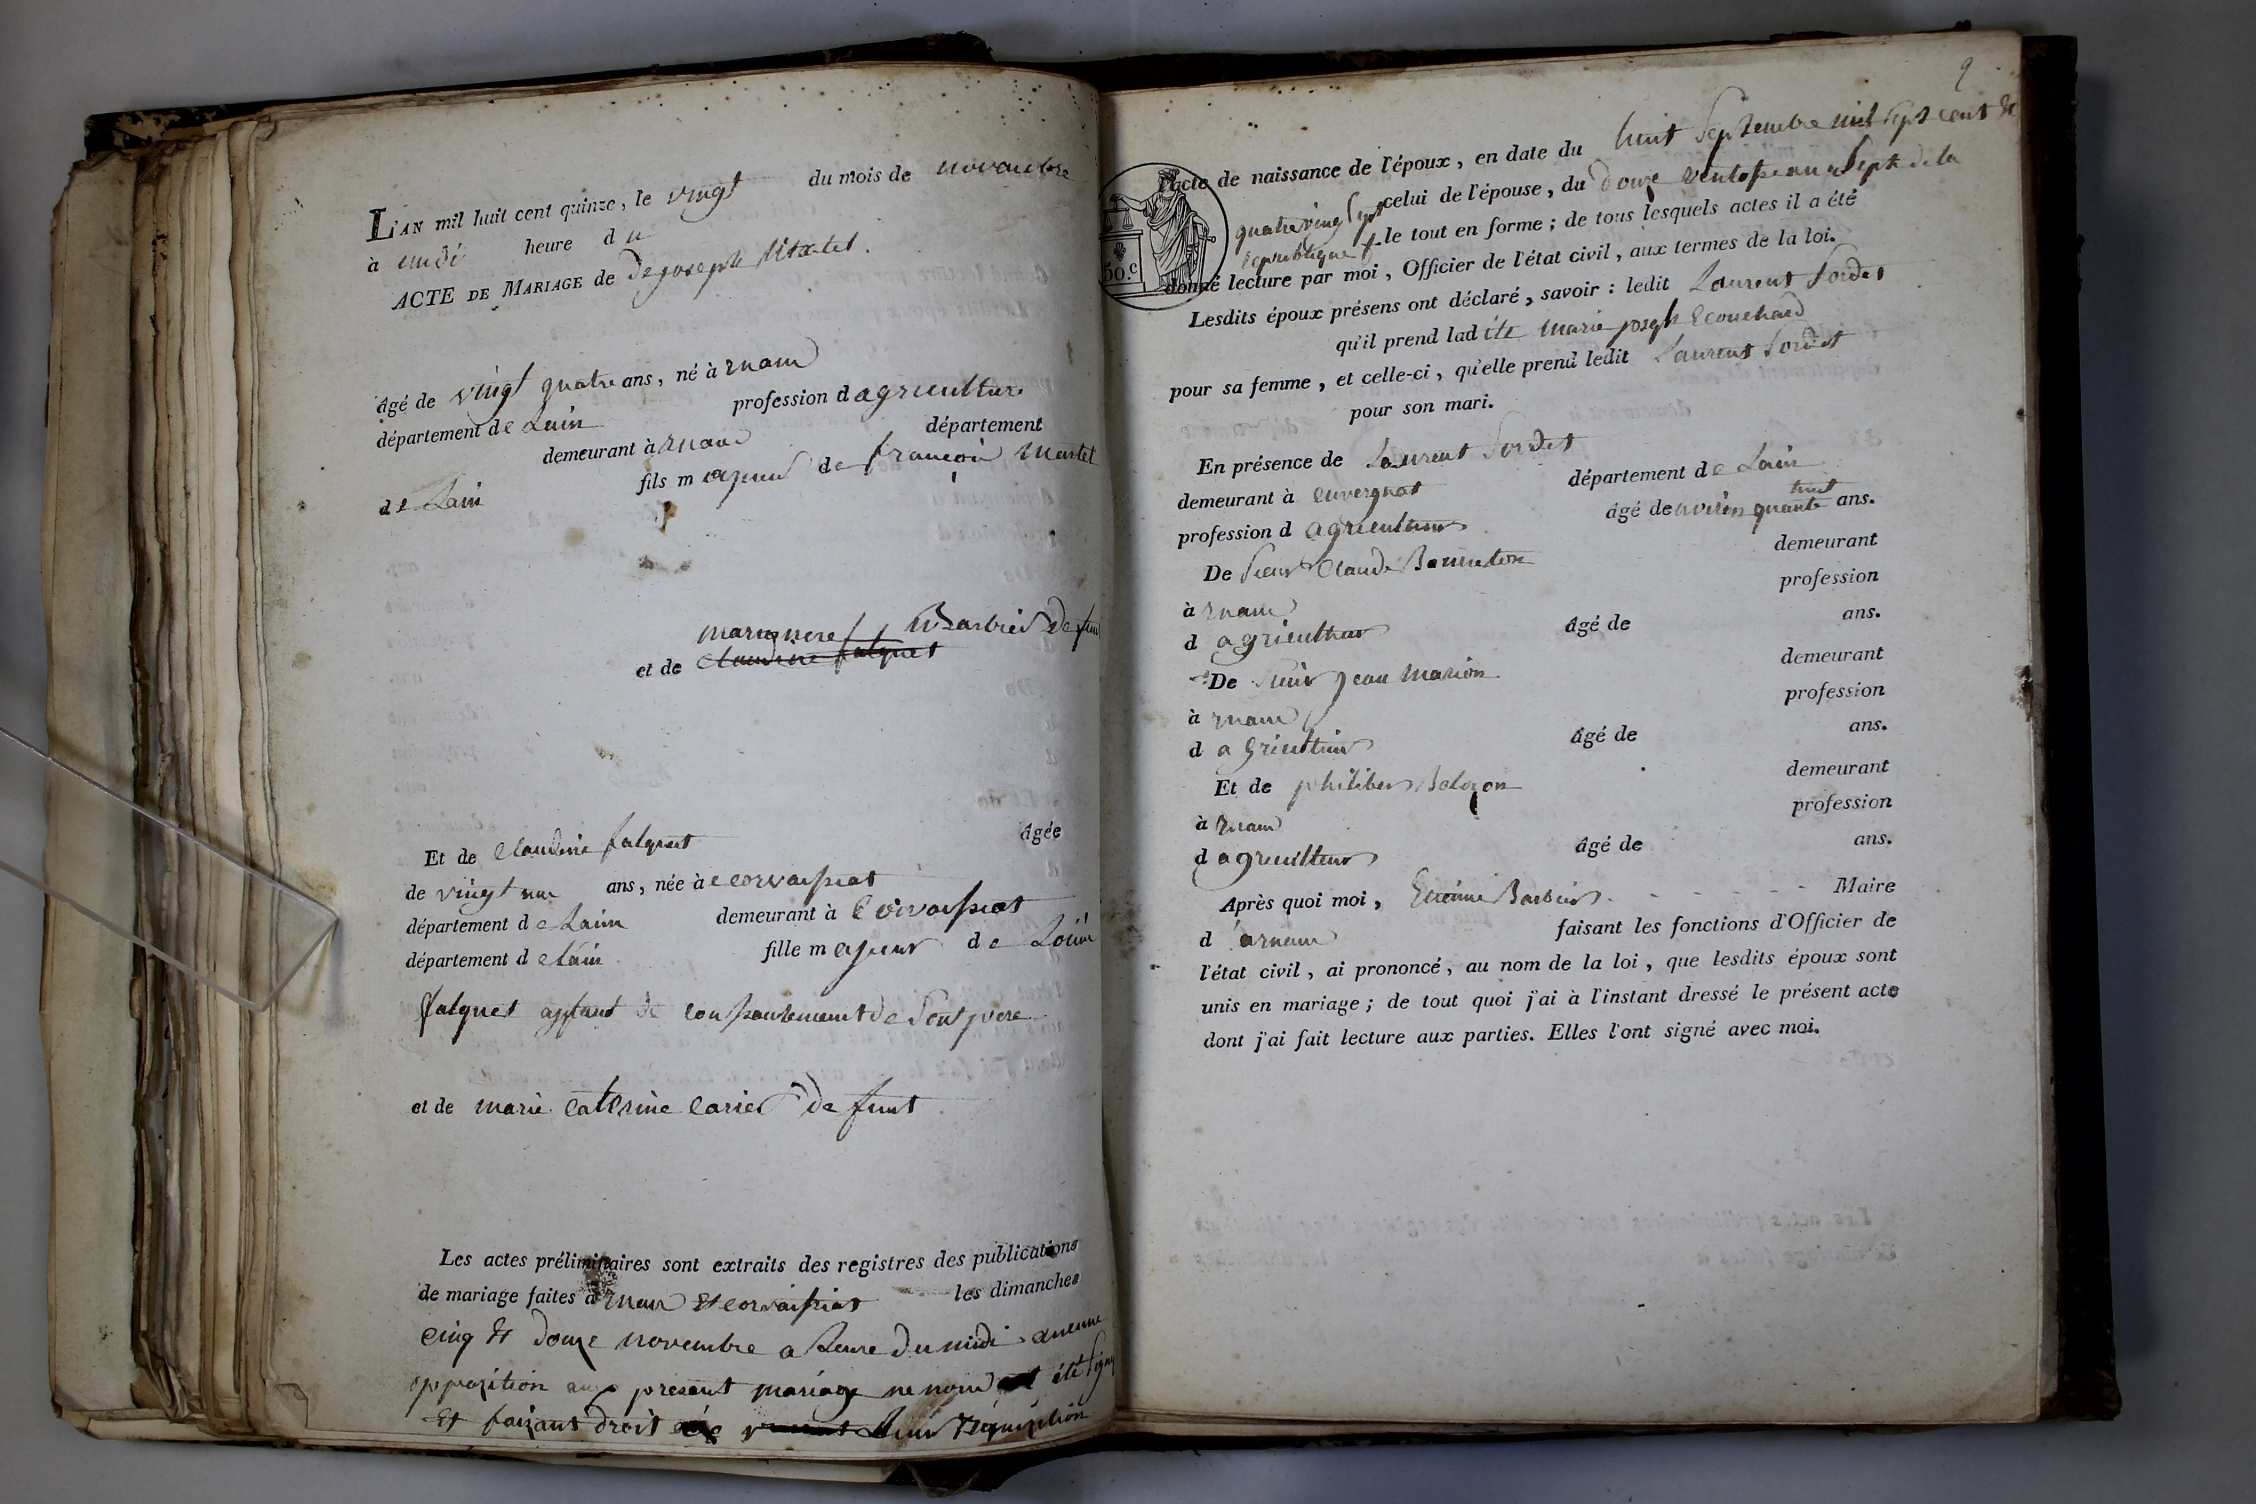 L'AN mil huit cent quinze, le vingt du mois de novembre
à midi heure du
ACTE DE MARIAGE de De joseph Martel
âgé de vingt quatre ans, né à rnam
département de Lain profession d agriculture
demeurant à rnam département
de Lain fils majeur de françoi Martel
marie Barbier de fun
et de claudine falquet
Et de claudine falquet âgée
de vingt un ans, née à corvaissiat
département de Lain demeurant à Corvaissiat
département de lain fille majeur de Loui
falquet de son pere
et de marie caterine carier de funt
Les actes préliminaires sont extraits des registres des publications
de mariage faites à rnam et corvaissiat les dimanches
cinq et douze novembre a heure du midi aucune
opposition au present mariage ne nous été
Et faisant droit requisition
2
l'acte de naissance de l'époux, en date du huit Septembre mil sept cent et
quatre vingt sept celui de l'épouse, du douze ventose an sept de la
republique le tout en forme; de tous lesquels actes il a été
50.c
donné lecture par moi, Officier de l'état civil, aux termes de la loi.
Lesdits époux présens ont déclaré, savoir: ledit Laurent Sordet
qu'il prend ladite Marie joseph Ecouchard
pour sa femme, et celle-ci, qu'elle prend ledit Laurent Sordet
pour son mari.
En présence de Laurent Sordet
demeurant à cuvergnat département de Lain
profession d agriculteur âgé de ans.
De sieur Claude Bonneton demeurant
à rnam profession
d agriculteur âgé de ans.
De sieur jean Marion demeurant
à rnam profession
d agriculteur âgé de ans.
Et de philibert demeurant
à rnam profession
d agriculteur âgé de ans.
Après quoi moi, Etienne Barbier Maire
d arnam faisant les fonctions d'Officier de
l'état civil, ai prononcé, au nom de la loi, que lesdits époux sont
unis en mariage; de tout quoi j'ai à l'instant dressé le présent acte
dont j'ai fait lecture aux parties. Elles l'ont signé avec moi.